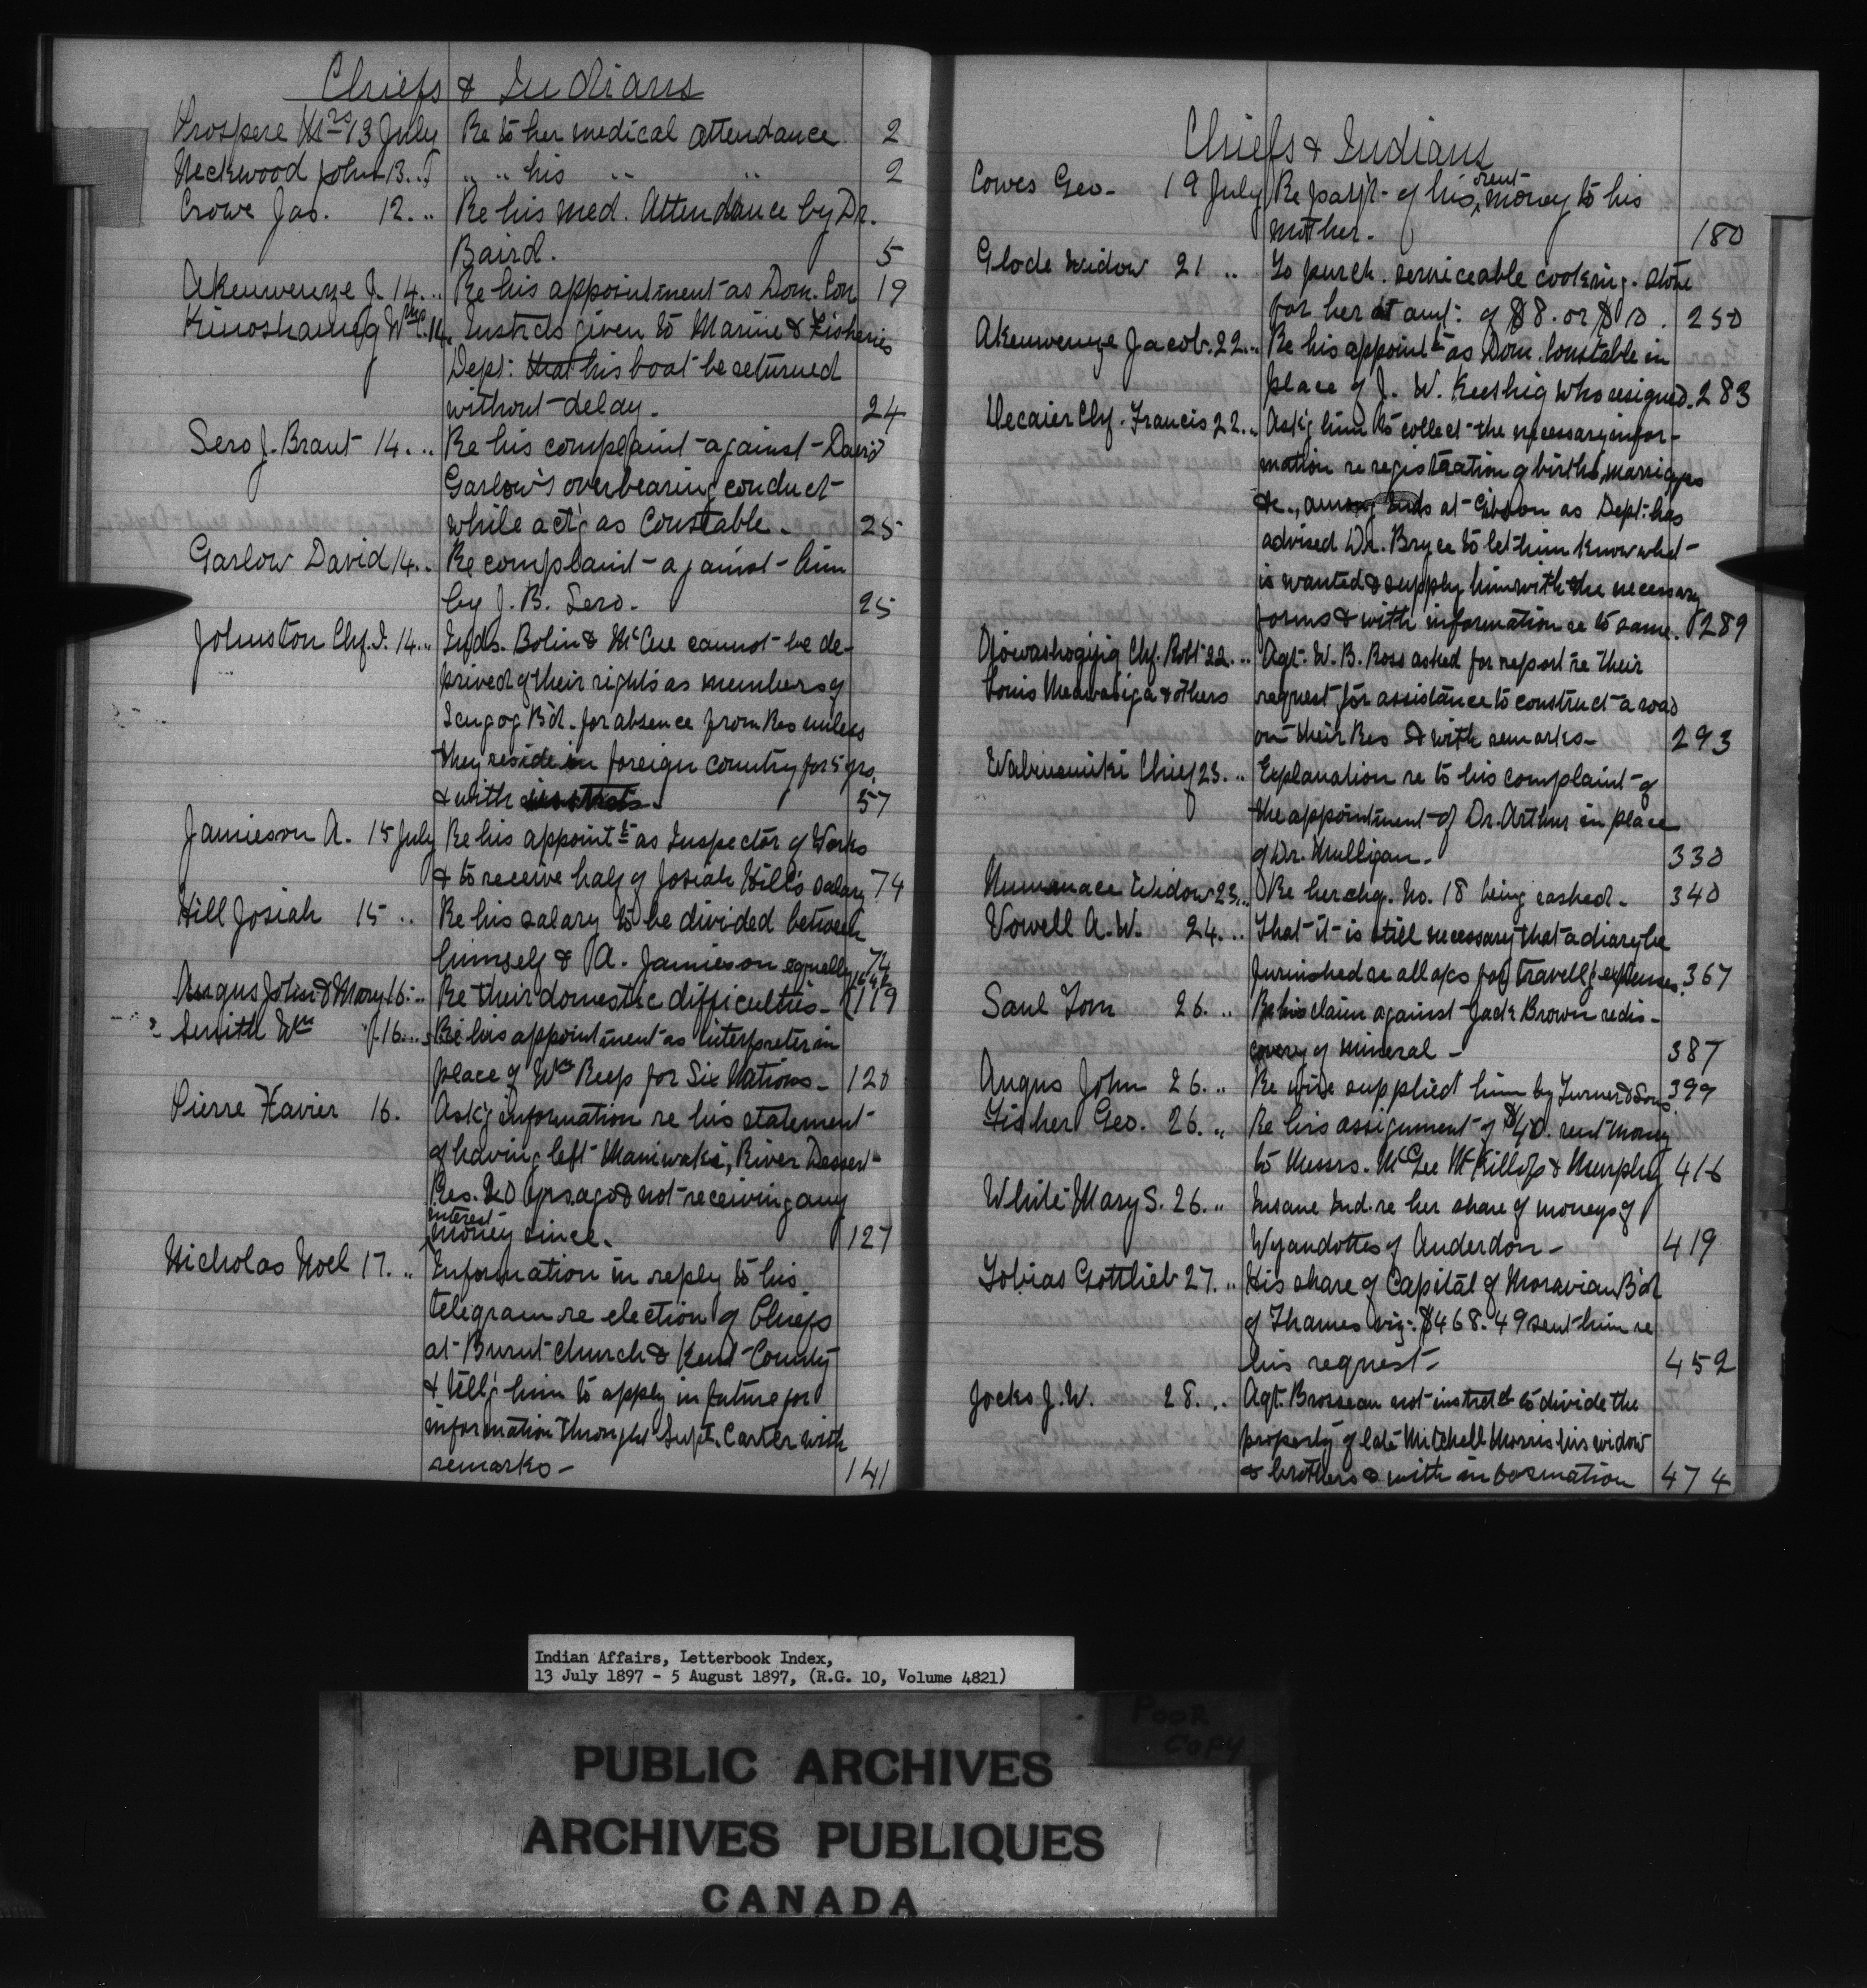 Chiefs & Indians
Prospere Mrs 13 July Re to her medical attendance 2
Neckwood John 13 .. J " " his " " 2
Crowe Jas. 12 .. Re his med. Attendance by Dr.
Baird. 5
Akenwenze J. 14 ... Re his appointment as Dom. Con 19
Kinoshameg Wm 14. Instrcts given to Marine & Fisheries
Dept: that his boat be returned
without delay. 24
Sero J. Brant 14. .. Re his complaint against David
Garlow's overbearing conduct
while act'g as Constable. 25
Garlow David 14 .. Re complaint against him
by J. B. Sero. 25
Johnston Chf. J. 14 .. Inds. Bolin & McCue cannot be de-
prived of their rights as members of
Scugog B'd. for absence from Res unless
they reside in foreign country for 5 yrs.
& with 57
Jamieson A. 15 July Re his appointt as Inspector of Works
& to receive half of Josiah Hill's salary 74
Hill Josiah 15 .. Re his salary to be divided between
himself & A. Jamieson equally 74
Angus John & Mary 16 .. Re their domestic difficulties - 119
Smith Wm J. 16 ... Re his appointment as interpreter in
place of Wm Reep for Six Nations - 120
Pierre Xavier 16. Ask'g information re his statement
of having left Maniwaki, River Dessert
Res. 20 yrs. ago & not receiving any
interest
money since. 127
Nicholas Noel 17. .. Information in reply to his
telegram re election of Chiefs
at Burnt church & Kent County
& tell'g him to apply in future for
information through Supt. Carter with
remarks - 141
Chiefs & Indians
Cowes Geo - 19 July Re paym't of his rent money to his
mother - 180
Glode Widow 21 .. To purch. serviceable cooking stove
for her at amt: of $8. or $10. 250
Akenwenze Jacob. 22 ... Re his appointt as Dom. Constable in
place of J. W. Keeshig who resigned. 283
Decaire Chf. Francis 22 ... Ask'g him to collect the necessary infor-
mation re registration of births, marriages
&c., among Inds at Gibson as Dept. has
advised Dr. Bryce to let him know what
is wanted & supply him with the necessary
forms & with information re to same. 289
Ajowashogijig Chf. Robt 22 ... Agt. W. B. Ross asked for report re their
Louis Menwasiga & others request for assistance to construct a road
on their Res & with remarks - 293
Wabinuniki Chief 23. .. Explanation re to his complaint of
the appointment of Dr. Arthur in place
of Dr. Mulligan - 330
Numanace Widow 23 ... Re her chq. No. 18 being cashed - 340
Vowell A. W. 24 ... That it is still necessary that a diary be
furnished re all a/cs for travell'g expenses. 367
Saul Tom 26. .. Re his claim against Jack Brown re dis-
covery of mineral - 387
Angus John 26. .. Re wire supplied him by Turner & Sons 399
Fisher Geo. 26. .. Re his assignment of $40. rent money
to Messrs. McGee McKillop & Murphy 416
White Mary S. 26. .. Insane Ind. re her share of moneys of
Wyandottes of Anderdon - 419
Tobias Gottlieb 27. .. His share of Capital of Moravian B'd
of Thames viz: $468.49 sent him re
his request - 452
Jocks J. W. 28. .. Agt. Brosseau not instrctd to divide the
property of late Mitchell Morris his widow
& brothers & with information 474
Indian Affairs, Letterbook Index,
13 July 1897 - 5 August 1897, (R.G. 10, Volume 4821)
POOR
COPY
PUBLIC ARCHIVES
ARCHIVES PUBLIQUES
CANADA